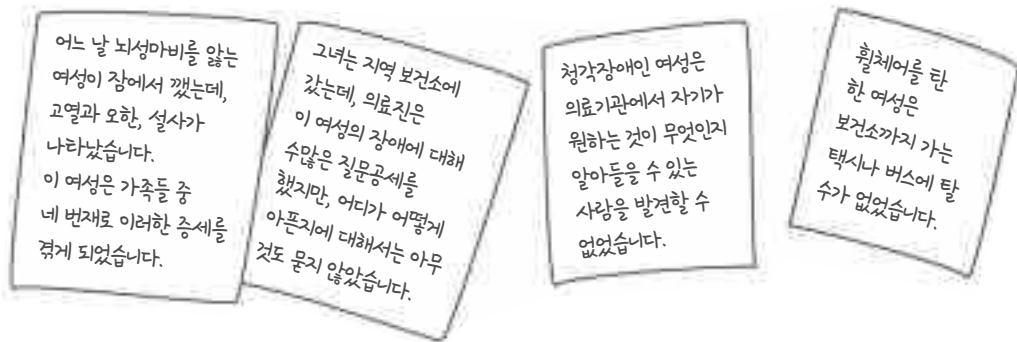 어느 날 뇌성마비를 앓는
여성이 잠에서 깼는데,
고열과 오한, 설사가
나타났습니다.
이 여성은 가족들 중
네 번재로 이러한 증세를
겪게 되었습니다.
그녀는 지역 보건소에
갔는데, 의료진은
이 여성의 장애에 대해
수많은 질문공세를
했지만, 어디가 어떻게
아픈지에 대해서는 아무
것도 묻지 않았습니다.
청각장애인 여성은
의료기관에서 자기가
원하는 것이 무엇인지
알아들을 수 있는
사람을 발견할 수
없었습니다.
휠체어를 탄
한 여성은
보건소까지 가는
택시나 버스에 탈
수가 없었습니다.